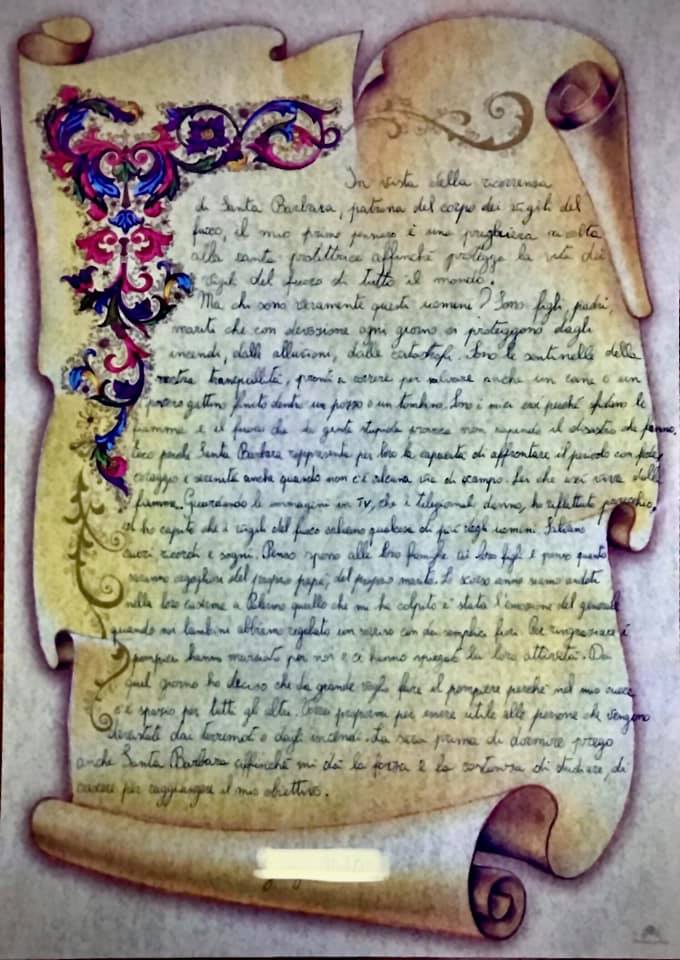 In vista della ricorrenza
di Santa Barbara, patrona del corpo dei vigili del
fuoco, il mio primo pensiero è una preghiera rivolta
alla santa protettrice affinché protegga la vita dei
vigili del fuoco di tutto il mondo.
Ma chi sono veramente questi uomini? Sono figli, padri,
mariti che con devozione ogni giorno ci proteggono dagli
incendi, dalle alluvioni, dalle catastrofi. Sono le sentinelle della
nostra tranquillità, pronti a correre per salvare anche un cane o un
povero gattino finito dentro un pozzo o un tombino. Sono i miei eroi perché sfidano le
fiamme e il fuoco che la gente stupida provoca non sapendo il disastro che fanno.
Ecco perché Santa Barbara rappresenta per loro la capacità di affrontare il pericolo con fede,
coraggio e serenità anche quando non c'è alcuna via di scampo. Lei che uscì viva dalle
fiamme. Guardando le immagini in TV, che i telegiornali danno, ho riflettuto parecchio.
Ho capito che i vigili del fuoco salvano qualcosa di più degli uomini. Salvano
cuori ricordi e sogni. Penso spesso alle loro famiglie ai loro figli e penso quanto
saranno orgogliosi del proprio papà, del proprio marito. Lo scorso anno siamo andati
nella loro caserma a Palermo quello che mi ha colpito è stata l'emozione del generale
quando noi bambini abbiamo regalato un sorriso con dei semplici fiori. Per ringraziare i
pompieri hanno marciato per noi e ci hanno spiegato la loro attività. Da
quel giorno ho deciso che da grande voglio fare il pompiere perché nel mio cuore
c'è spazio per tutti gli altri. Cerco prepararmi per essere utile alle persone che vengono
devastate dai terremoti o dagli incendi. La sera prima di dormire prego
anche Santa Barbara affinché mi dia la forza e la costanza di studiare, di
crescere per raggiungere il mio obiettivo.